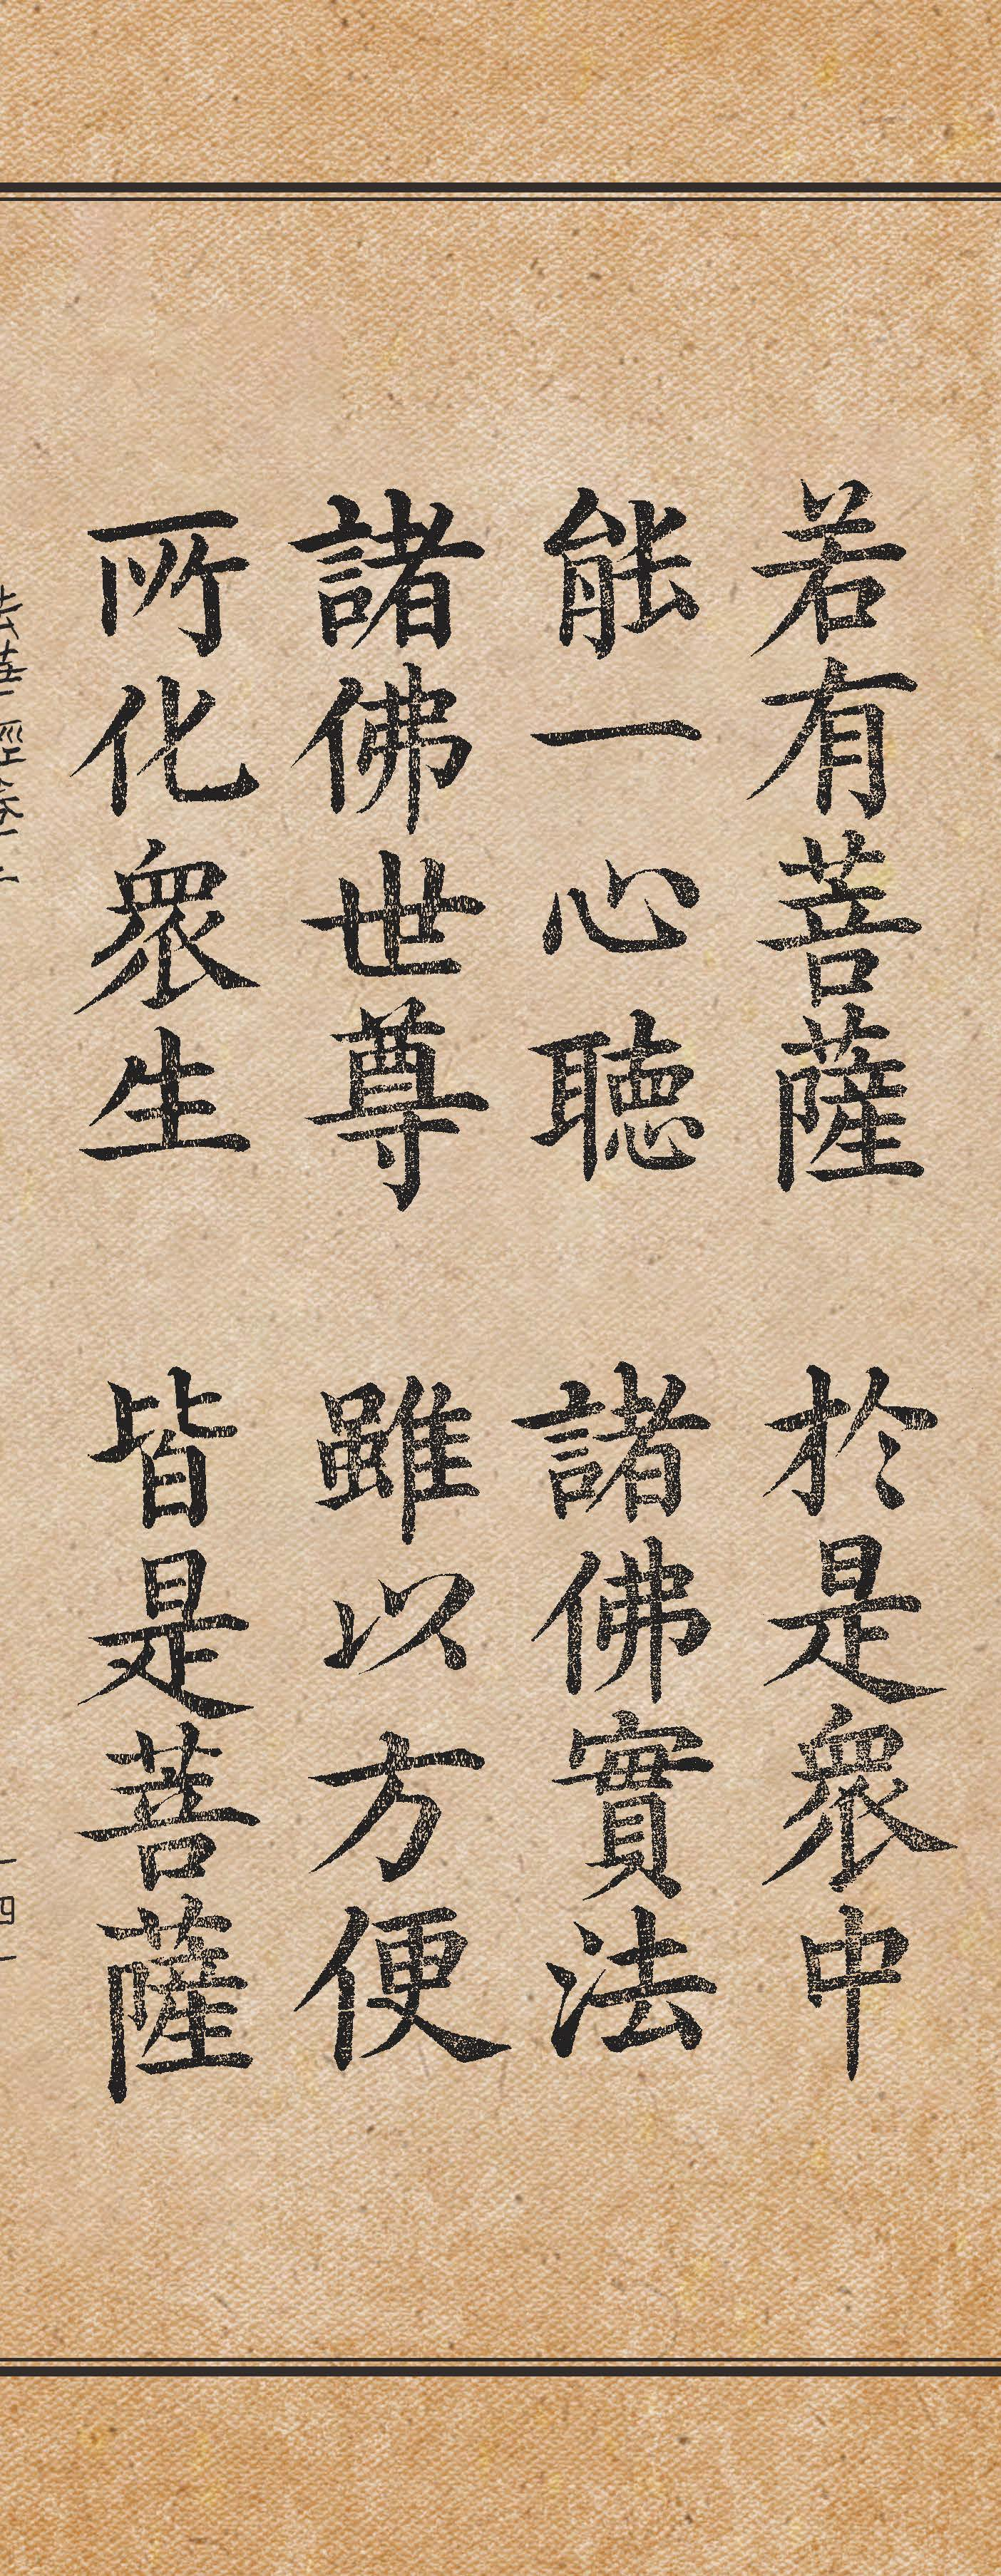 若有菩薩　於是衆中
能一心聽　諸佛實法
諸佛世尊　雖以方便
所化衆生　皆是菩薩